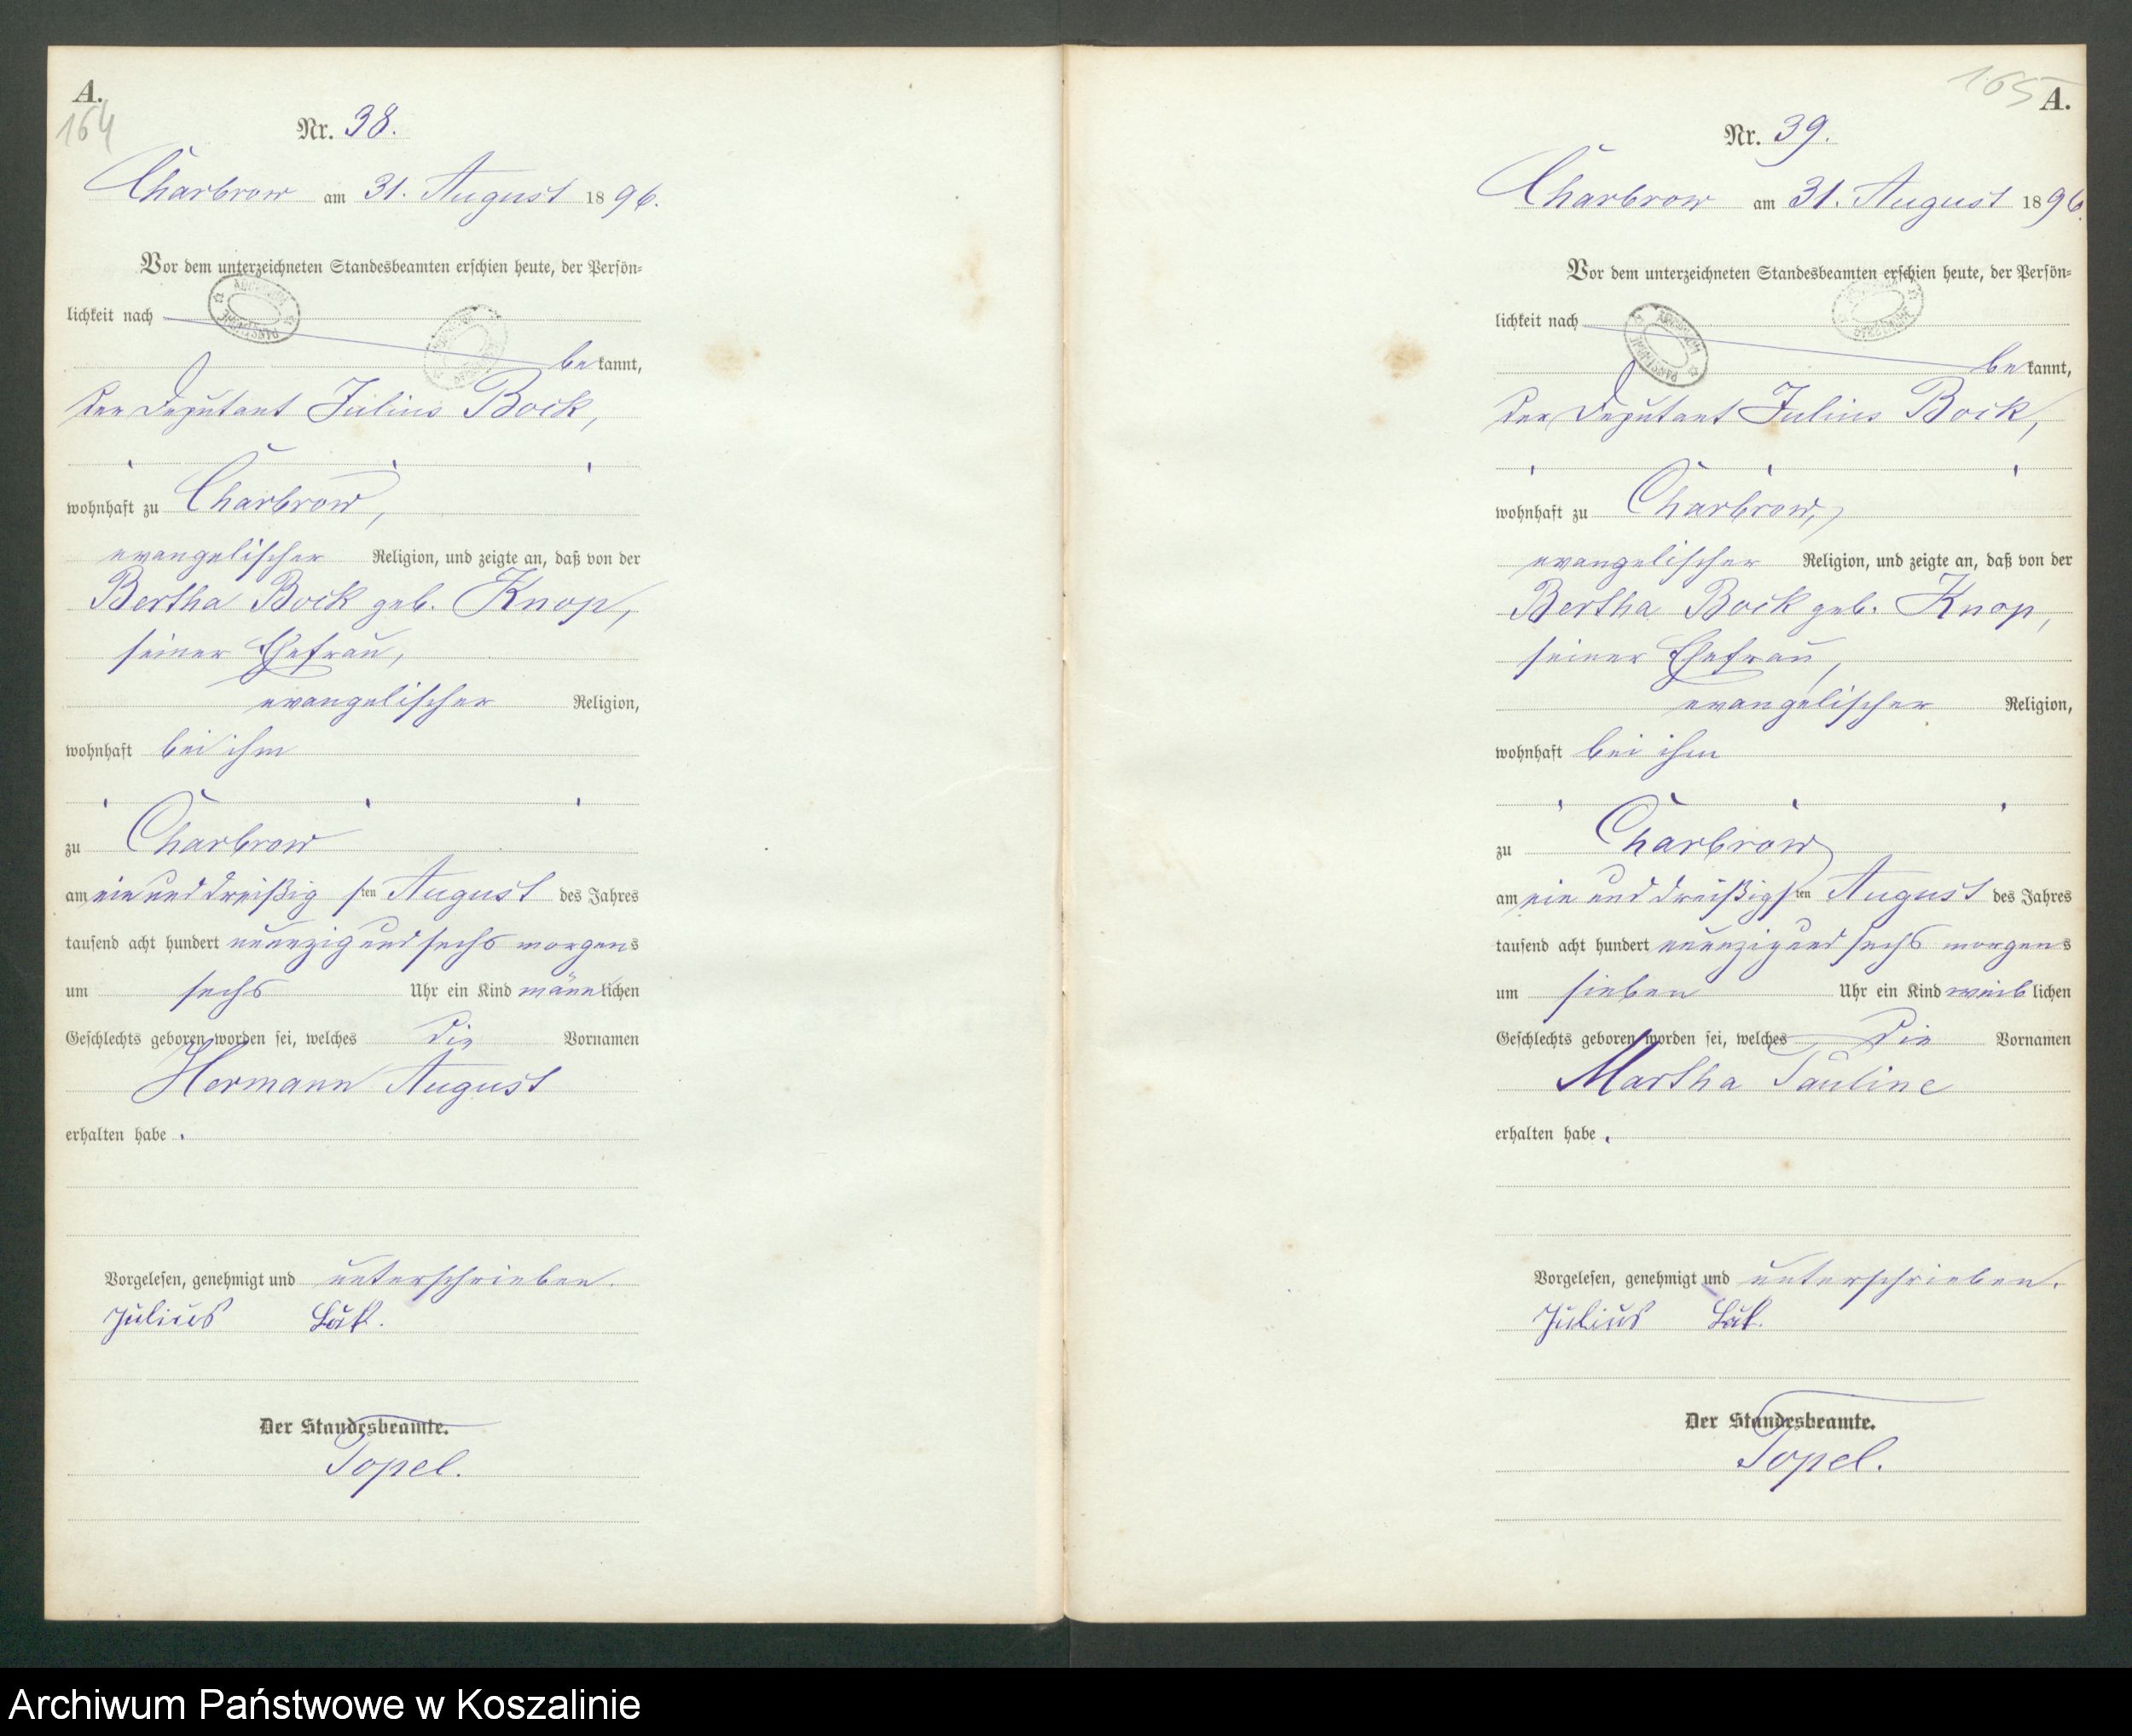 A.
164
Nr. 38.
Charbrow am 31. August 1896.
Vor dem unterzeichneten Standesbeamten erschien heute, der Persön-
lichkeit nach
bekannt,
der Deputant Julius Bock,
wohnhaft zu Charbrow,
evangelischer Religion, und zeigte an, daß von der
Bertha Bock geb. Knop,
seiner Ehefrau,
evangelischer Religion,
wohnhaft bei ihm
zu Charbrow
am ein und dreißigsten August des Jahres
tausend acht hundert neunzig und sechs morgens
um sechs Uhr ein Kind männlichen
Geschlechts geboren worden sei, welches die Vornamen
Hermann August
erhalten habe.
Vorgelesen, genehmigt und unterschrieben.
Julius
Der Standesbeamte.
Topel.
165
A.
Nr. 39.
Charbrow am 31. August 1896.
Vor dem unterzeichneten Standesbeamten erschien heute, der Persön-
lichkeit nach
bekannt,
der Deputant Julius Bock,
wohnhaft zu Charbrow,
evangelischer Religion, und zeigte an, daß von der
Bertha Bock geb. Knop,
seiner Ehefrau,
evangelischer Religion,
wohnhaft bei ihm
zu Charbrow
am ein und dreißigsten August des Jahres
tausend acht hundert neunzig und sechs morgens
um sieben Uhr ein Kind weiblichen
Geschlechts geboren worden sei, welches die Vornamen
Martha Pauline
erhalten habe.
Vorgelesen, genehmigt und unterschrieben.
Julius
Der Standesbeamte.
Topel.
Archiwum Państwowe w Koszalinie